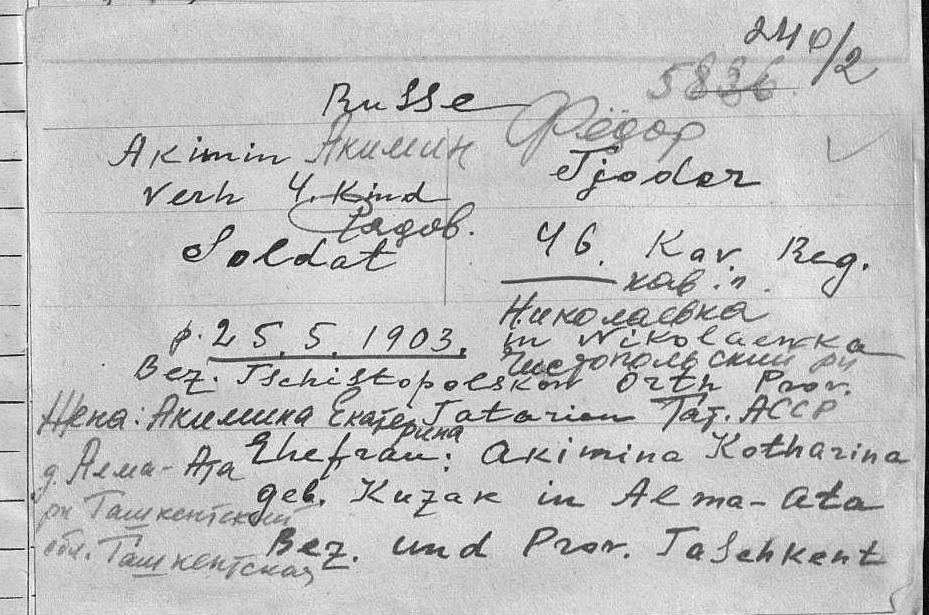 240/2
5836
Russe
Akimin Акимин Фёдор
Fjodor
verh 4. Kind
Рядов.
Soldat 46. Kav. Reg.
кав. п.
Николаевка
р. 25. 5. 1903. in Nikolaewka
Чистопольский рн
Bez. Tschistopolskon Orth Prov.
Жена: Акимина Екатерина Tatarien Тат. АССР
д. Алма-Ата Ehefrau: Akimina Katharina
geb. Kuzak in Alma-Ata
рн Ташкентский
Bez. und Prov. Taschkent
обл. Ташкентская